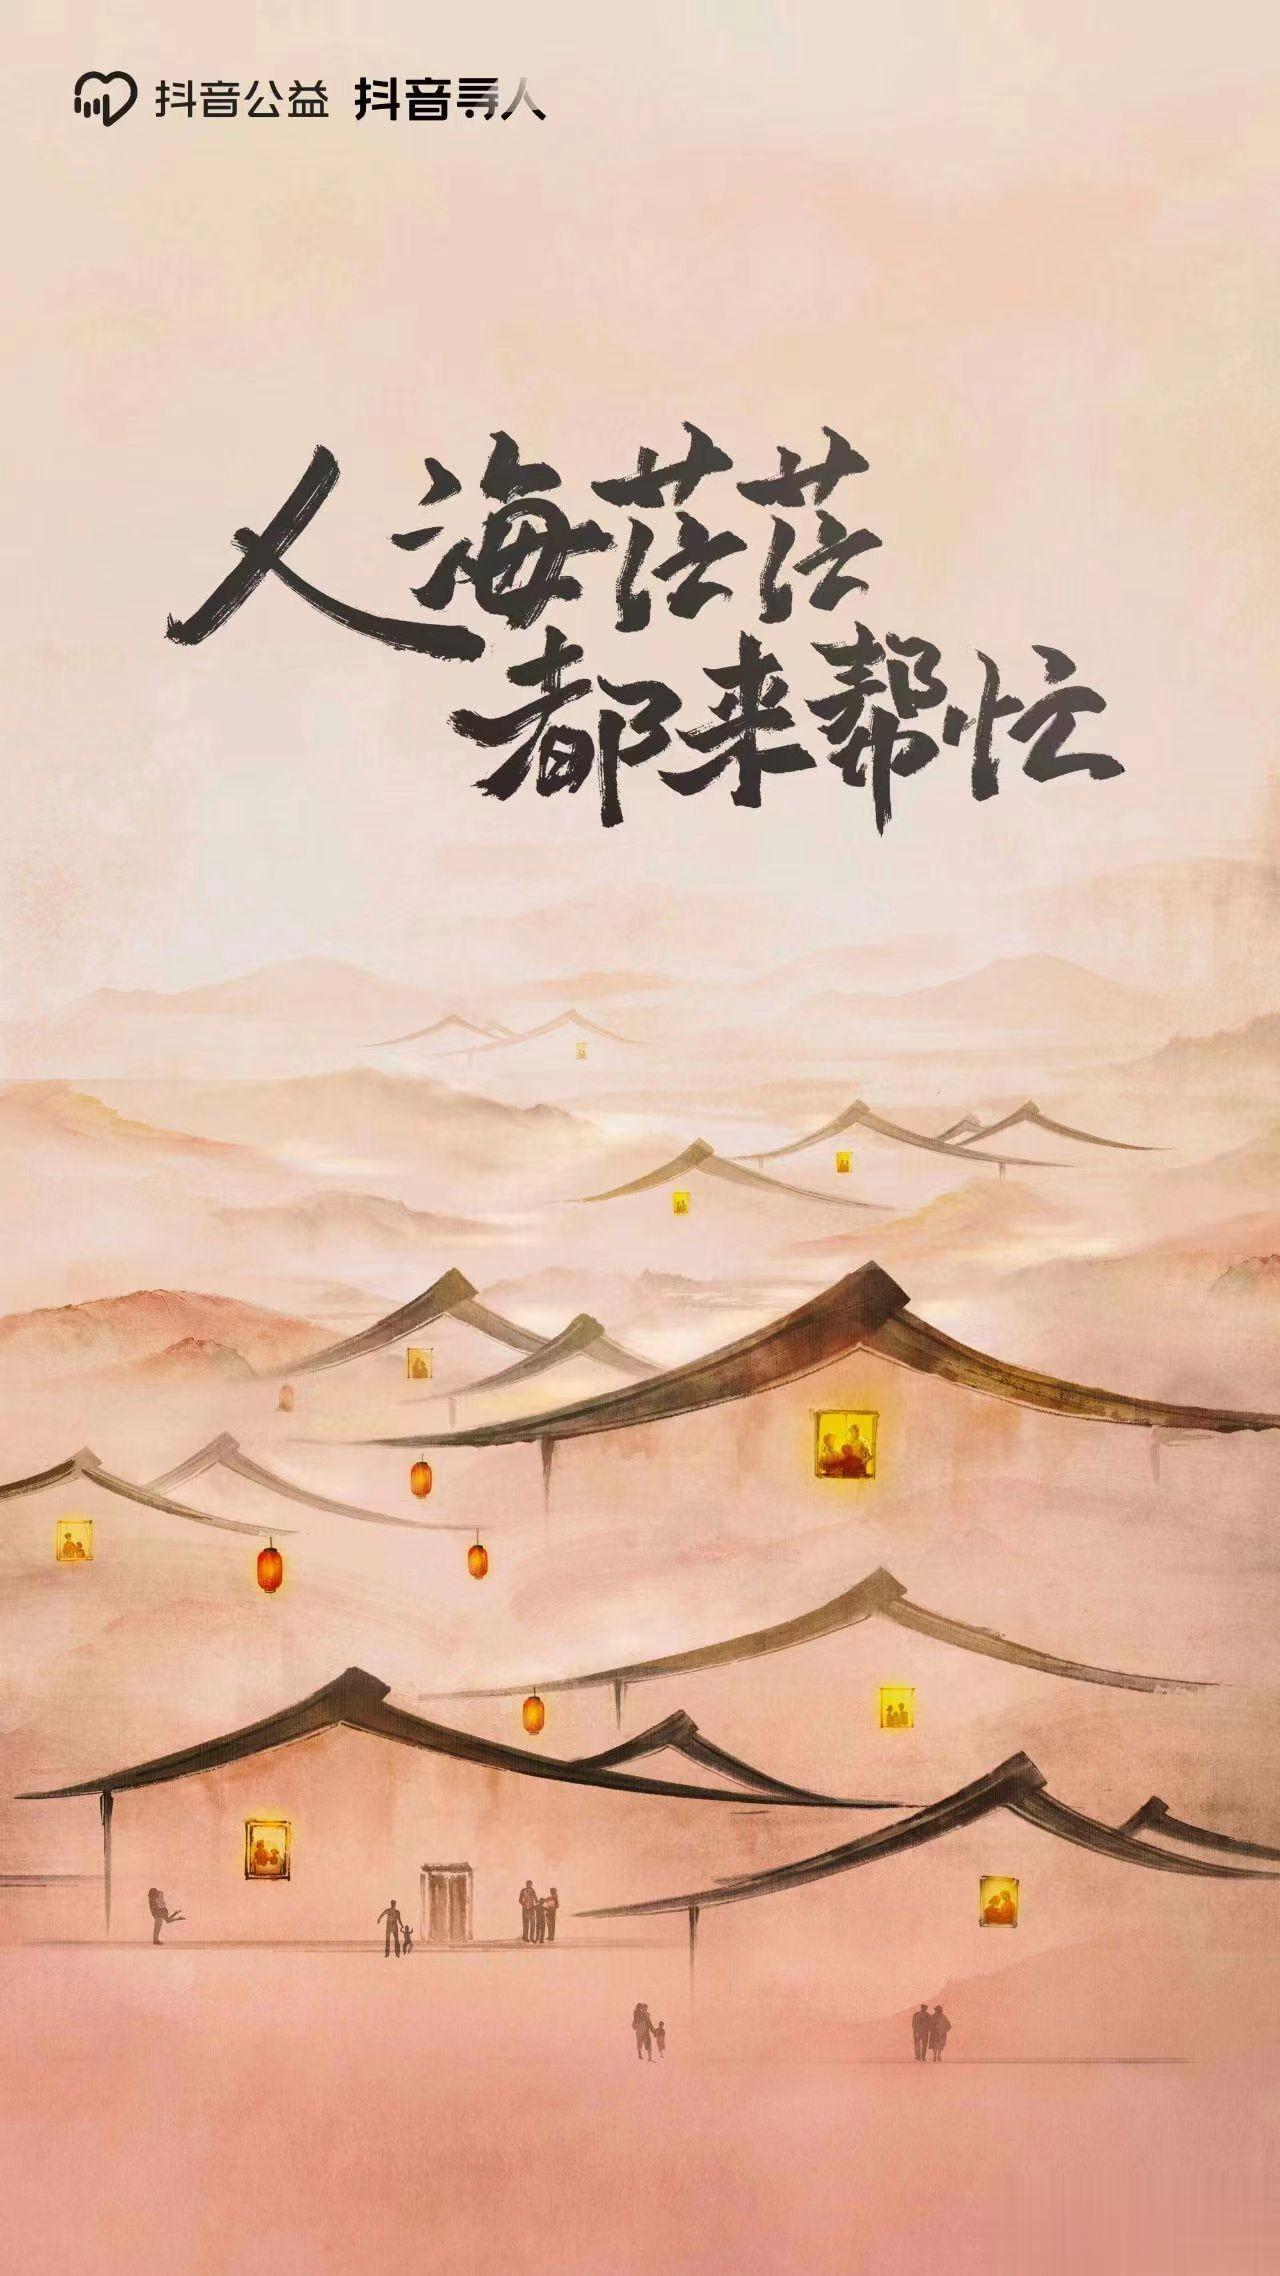 抖音公益 抖音寻人
人海茫茫
都来帮忙